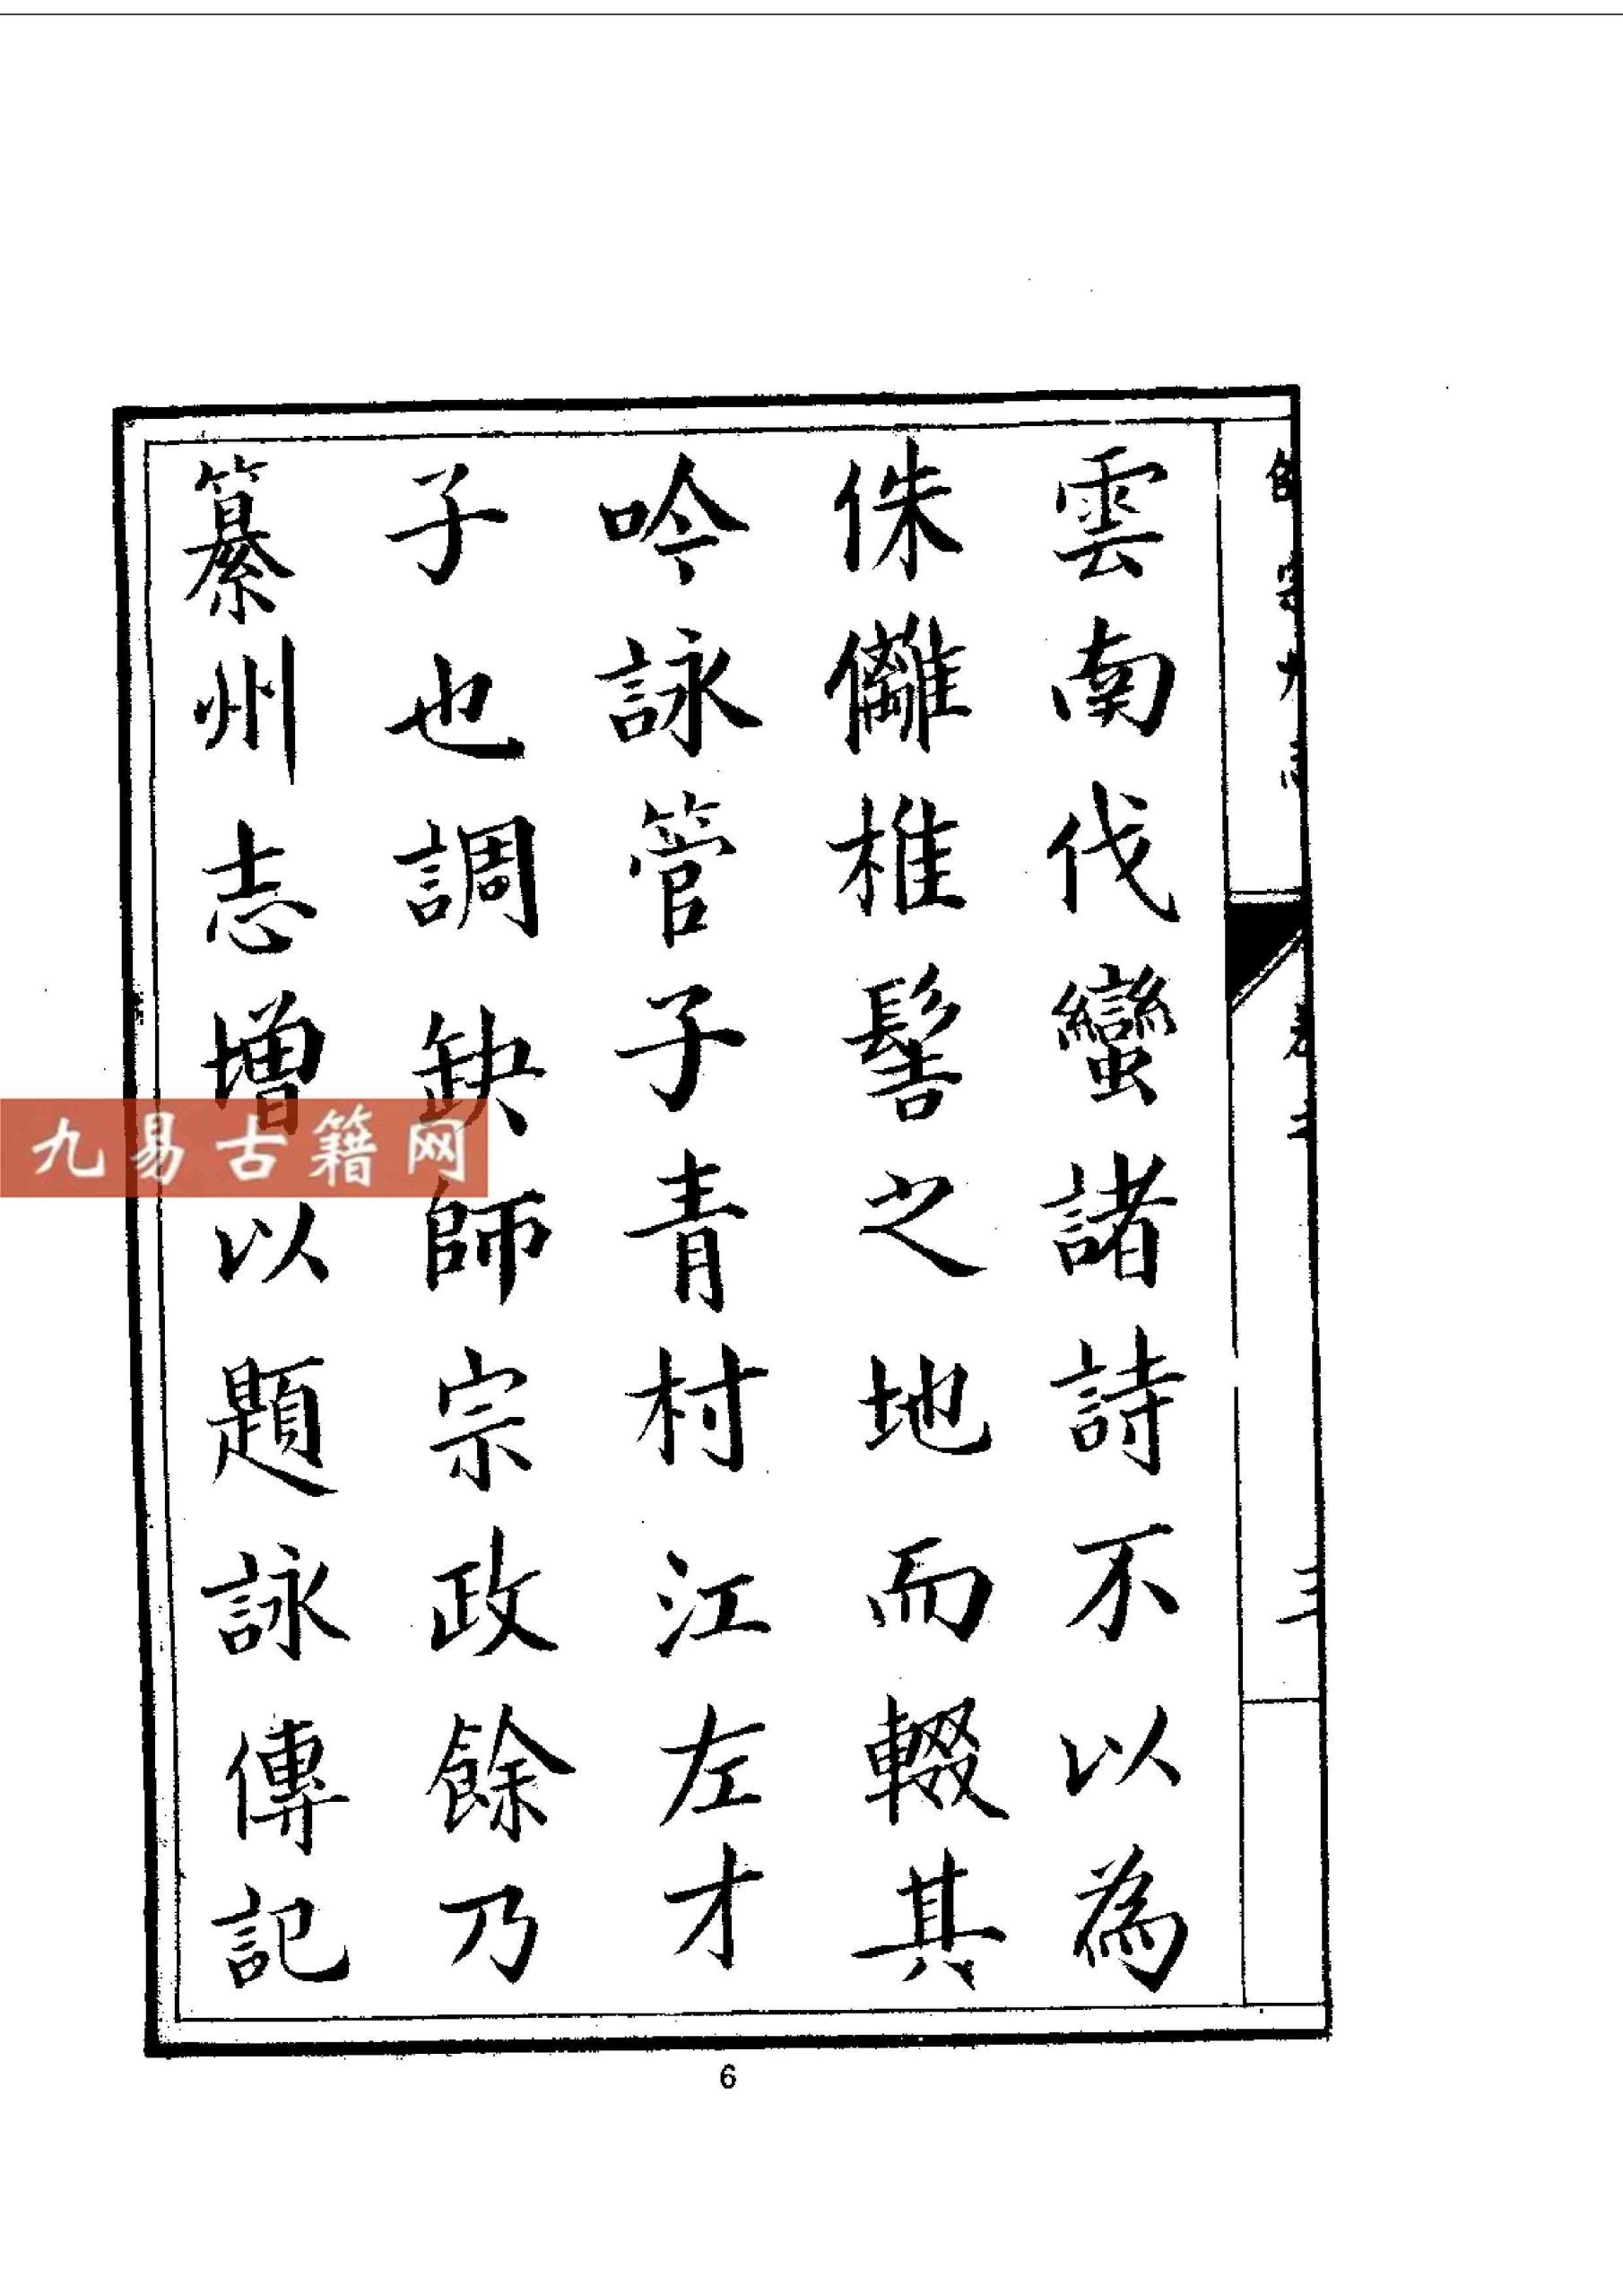 雲南伐蠻諸詩不以為
侏㒧椎髻之地而輟其
吟詠管子青村江左才
子也調缺師宗政餘乃
纂州志增以題詠傳記
卷二
三
九易古籍网
6